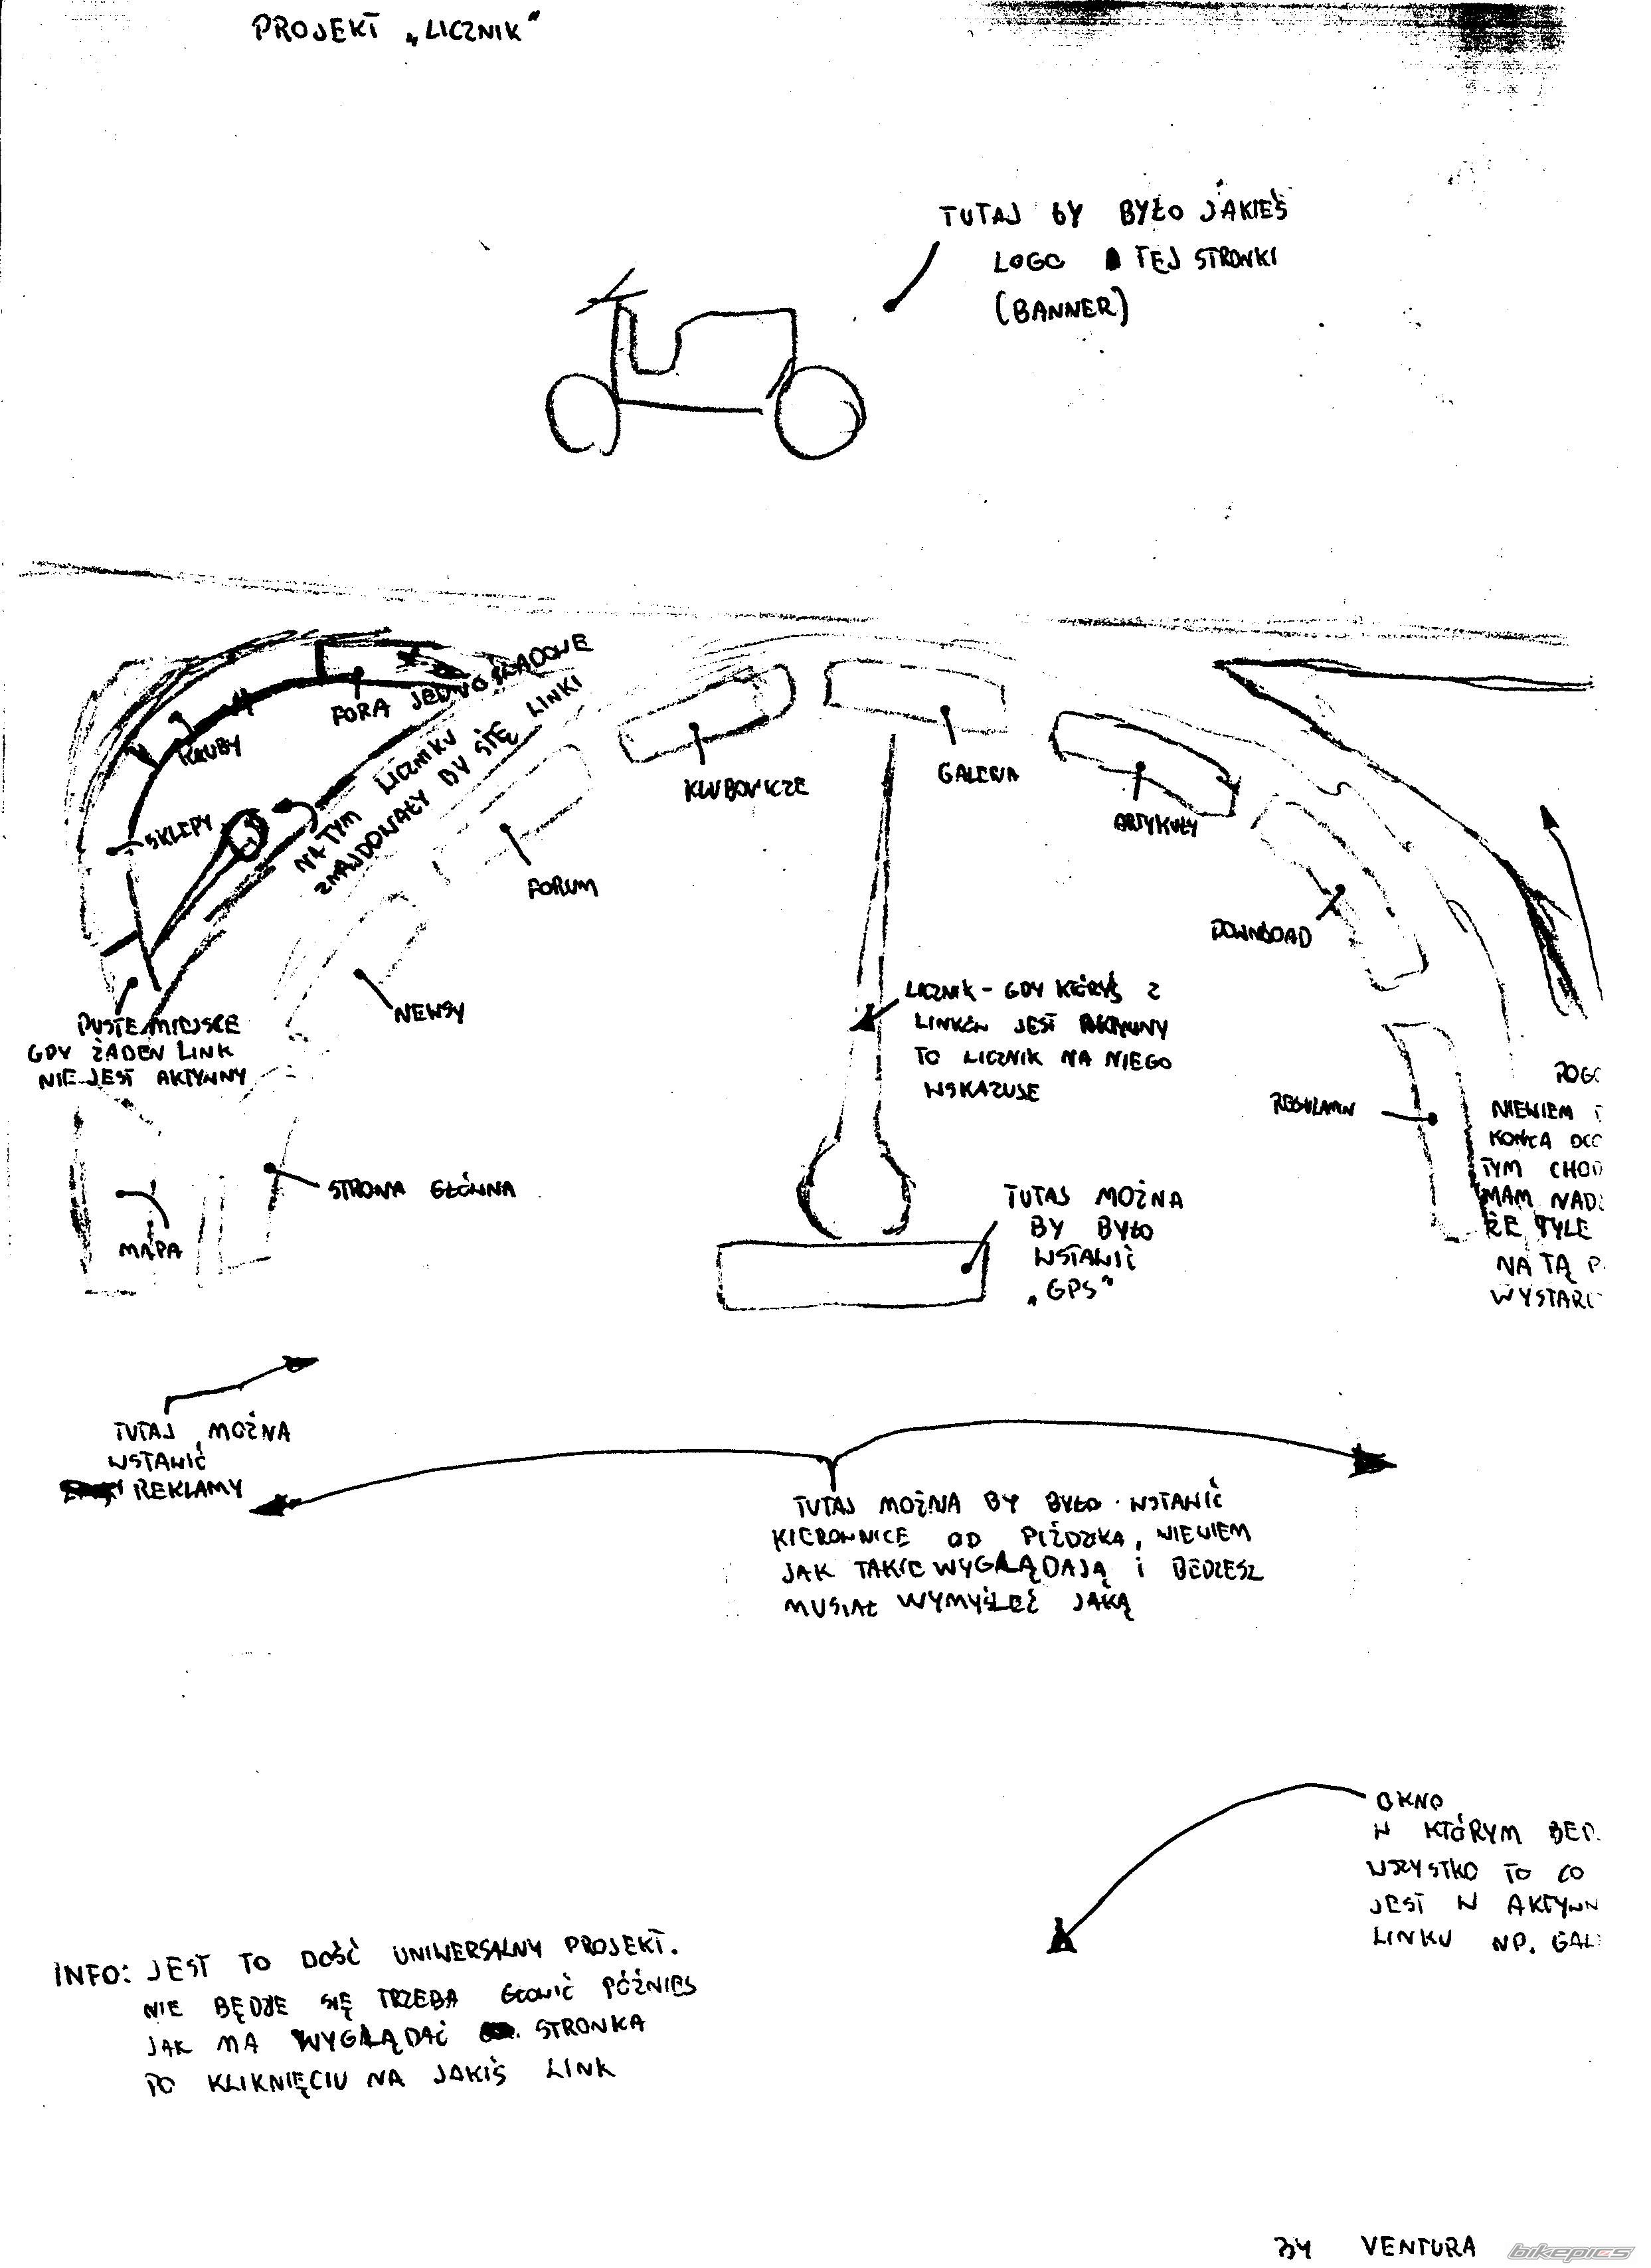 PROJEKT „LICZNIK"
TUTAJ BY BYŁO JAKIEŚ
LOGO TEJ STRONKI
(BANNER)
FORA JEDNOŚLADOWE
KLUBY
SKLEPY
NA TYM LICZNIKU
ZNAJDOWAŁY BY SIĘ LINKI
PUSTE MIEJSCE
GDY ŻADEN LINK
NIE JEST AKTYWNY
MAPA
STRONA GŁÓWNA
NEWSY
FORUM
KLUBOWICZE
GALERIA
ARTYKUŁY
DOWNLOAD
REGULAMIN
LICZNIK - GDY KTÓRYŚ Z
LINKÓW JEST AKTYWNY
TO LICZNIK NA NIEGO
WSKAZUJE
TUTAJ MOŻNA
BY BYŁO
WSTAWIĆ
„GPS"
POGO
NIEWIEM
KOŃCA OCO
TYM CHOD
MAM NADZ
ŻE TYLE
NA TĄ P
WYSTARC
TUTAJ MOŻNA
WSTAWIĆ
REKLAMY
TUTAJ MOŻNA BY BYŁO WSTAWIĆ
KIEROWNICE OD PIŹDZIKA, NIEWIEM
JAK TAKIE WYGLĄDAJĄ i BEDZIESZ
MUSIAŁ WYMYŚLEĆ JAKĄ
OKNO
W KTÓRYM BED
WSZYSTKO TO CO
JEST W AKTYWN
LINKU NP. GAL
INFO: JEST TO DOŚĆ UNIWERSALNY PROJEKT.
NIE BĘDZIE SIĘ TRZEBA GŁOWIĆ PÓŹNIEJ
JAK MA WYGLĄDAĆ STRONKA
PO KLIKNIĘCIU NA JAKIŚ LINK
BY VENTURA
bikepics